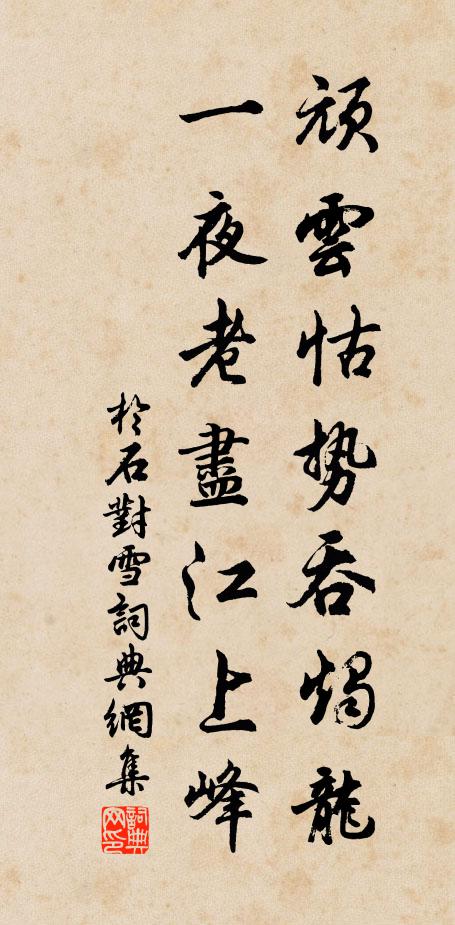 頑雲怙勢吞燭龍
一夜老盡江上峰
於石對雪詞典網集
詞典网印